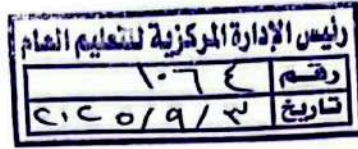 رئيس الإدارة المركزية للتعليم العام
رقم ١٠٦٤
تاريخ ٢٠٢٥/٩/٣